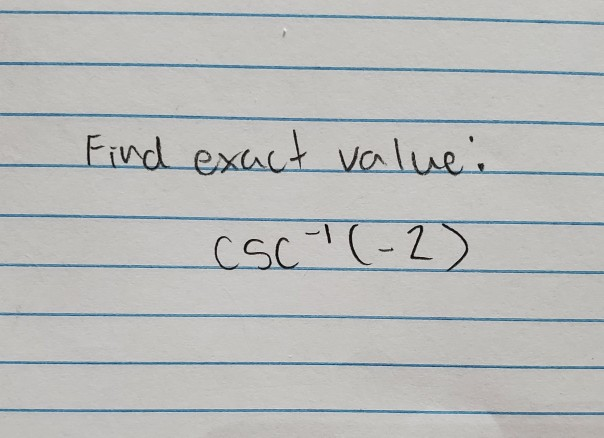 Find exact value:
csc⁻¹(-2)